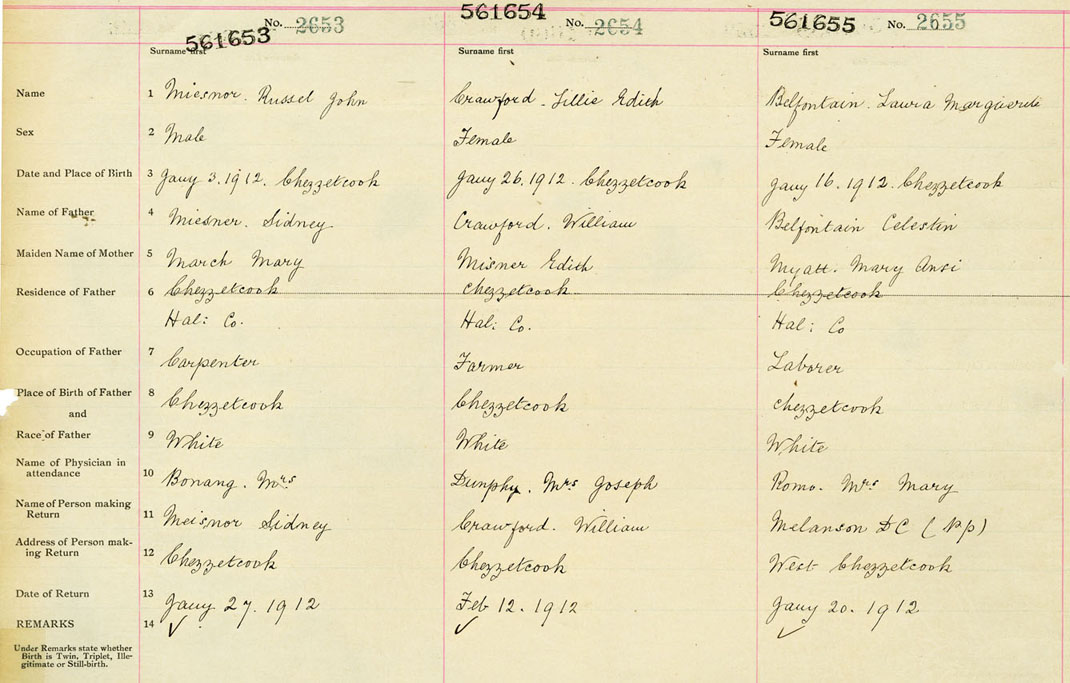 561653 No. 2653 561654 No. 2654 561655 No. 2655
Surname first Surname first Surname first
Name 1 Miesnor. Russel John Crawford. Lillie Edith Belfontain. Lauria Marguerite
Sex 2 Male Female Female
Date and Place of Birth 3 Jany 3. 1912. Chezzetcook Jany 26. 1912. Chezzetcook Jany 16. 1912. Chezzetcook
Name of Father 4 Miesner. Sidney Crawford. William Belfontain Celestin
Maiden Name of Mother 5 March Mary Misner Edith Myatt. Mary Ansi
Residence of Father 6 Chezzetcook Chezzetcook Chezzetcook
Hal: Co. Hal: Co. Hal: Co
Occupation of Father 7 Carpenter Farmer Laborer
Place of Birth of Father 8 Chezzetcook Chezzetcook Chezzetcook
and
Race of Father 9 White White White
Name of Physician in
attendance 10 Bonang. Mrs Dunphy. Mrs Joseph Romo. Mrs Mary
Name of Person making
Return 11 Meisnor Sidney Crawford. William Melanson DC (PP)
Address of Person mak-
ing Return 12 Chezzetcook Chezzetcook West Chezzetcook
Date of Return 13 Jany 27. 1912 Feb 12. 1912 Jany 20. 1912
REMARKS 14 ✓ ✓ ✓
Under Remarks state whether
Birth is Twin, Triplet, Ille-
gitimate or Still-birth.